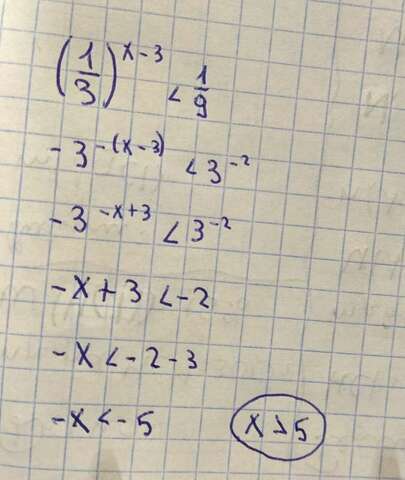 (1/3)^x-3 < 1/9
-3^-(x-3) < 3^-2
-3^-x+3 < 3^-2
-x+3 < -2
-x < -2-3
-x < -5 x > 5